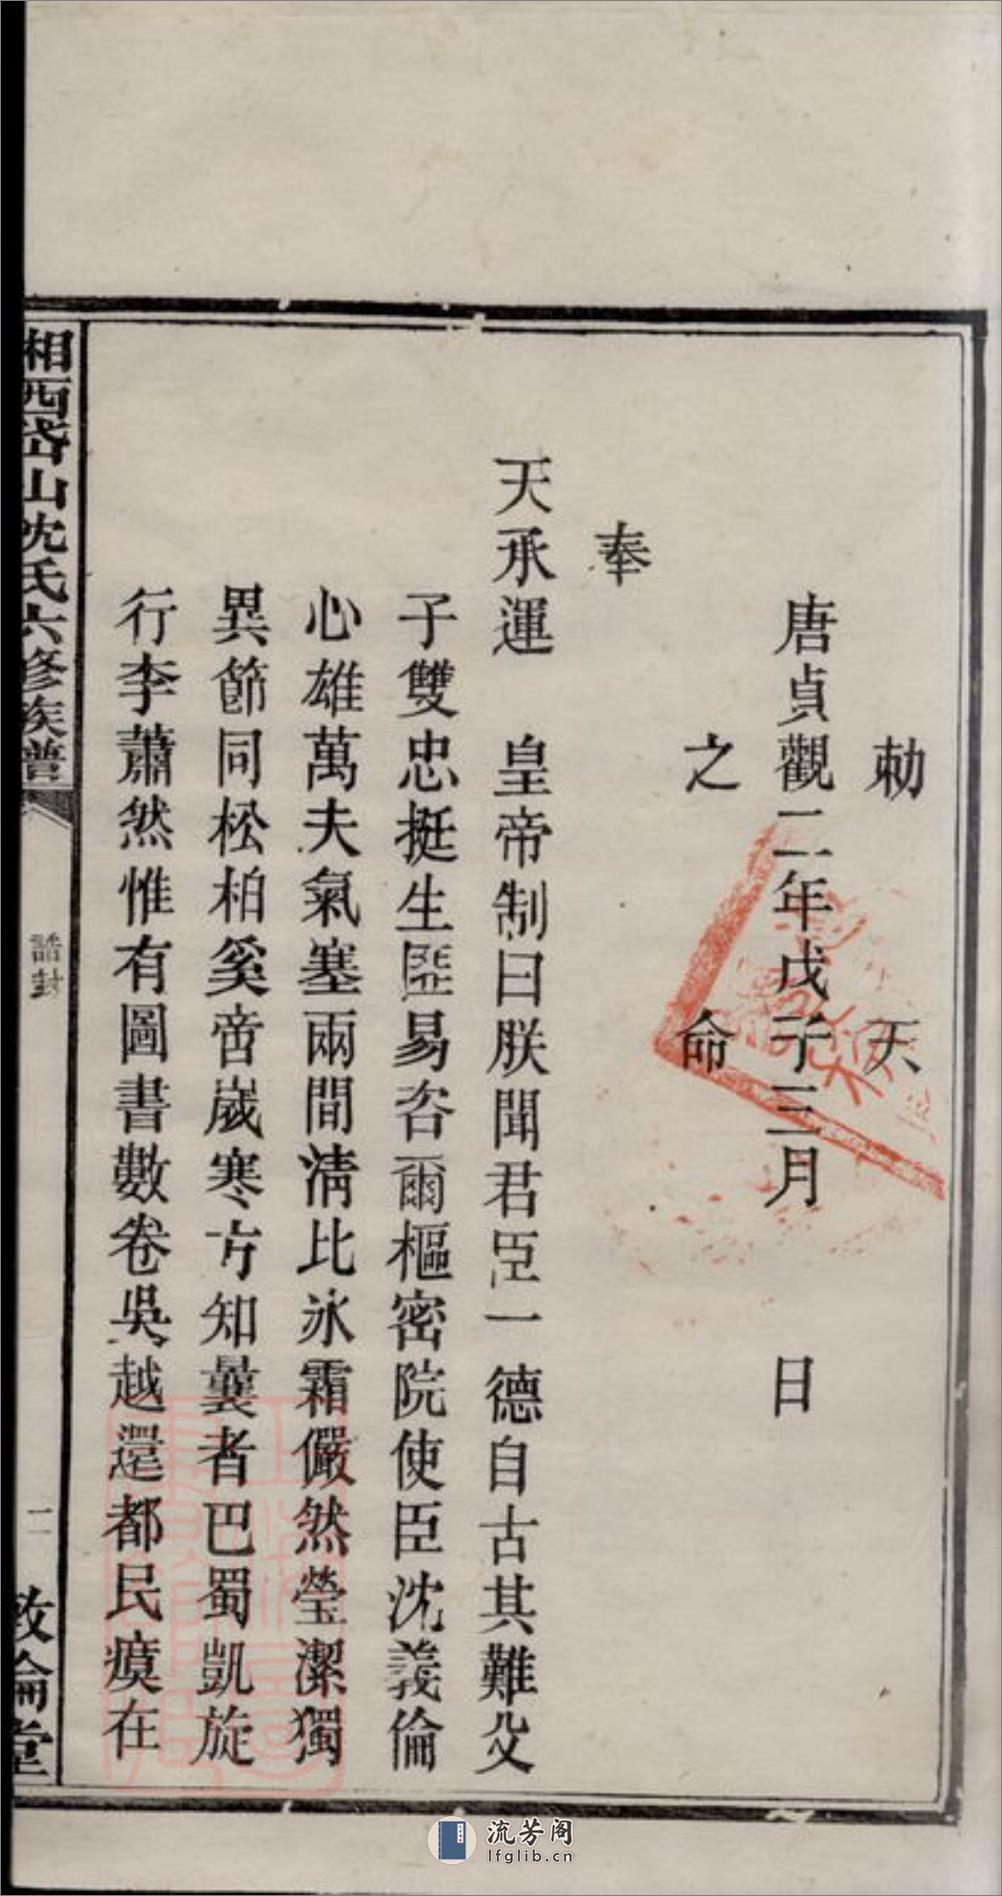 勅　天
唐貞觀二年戊子三月　日
之　命
奉
天承運　皇帝制曰朕聞君臣一德自古其難父
子雙忠挺生匪易咨爾樞密院使臣沈義倫
心雄萬夫氣塞兩間淸比氷霜儼然瑩潔獨
異節同松柏奚啻嵗寒方知曩者巴蜀凱旋
行李蕭然惟有圖書數卷吳越還都民瘼在
湘西岱山沈氏六修族譜
誥封
二
敦倫堂
流芳阁
lfglib.cn